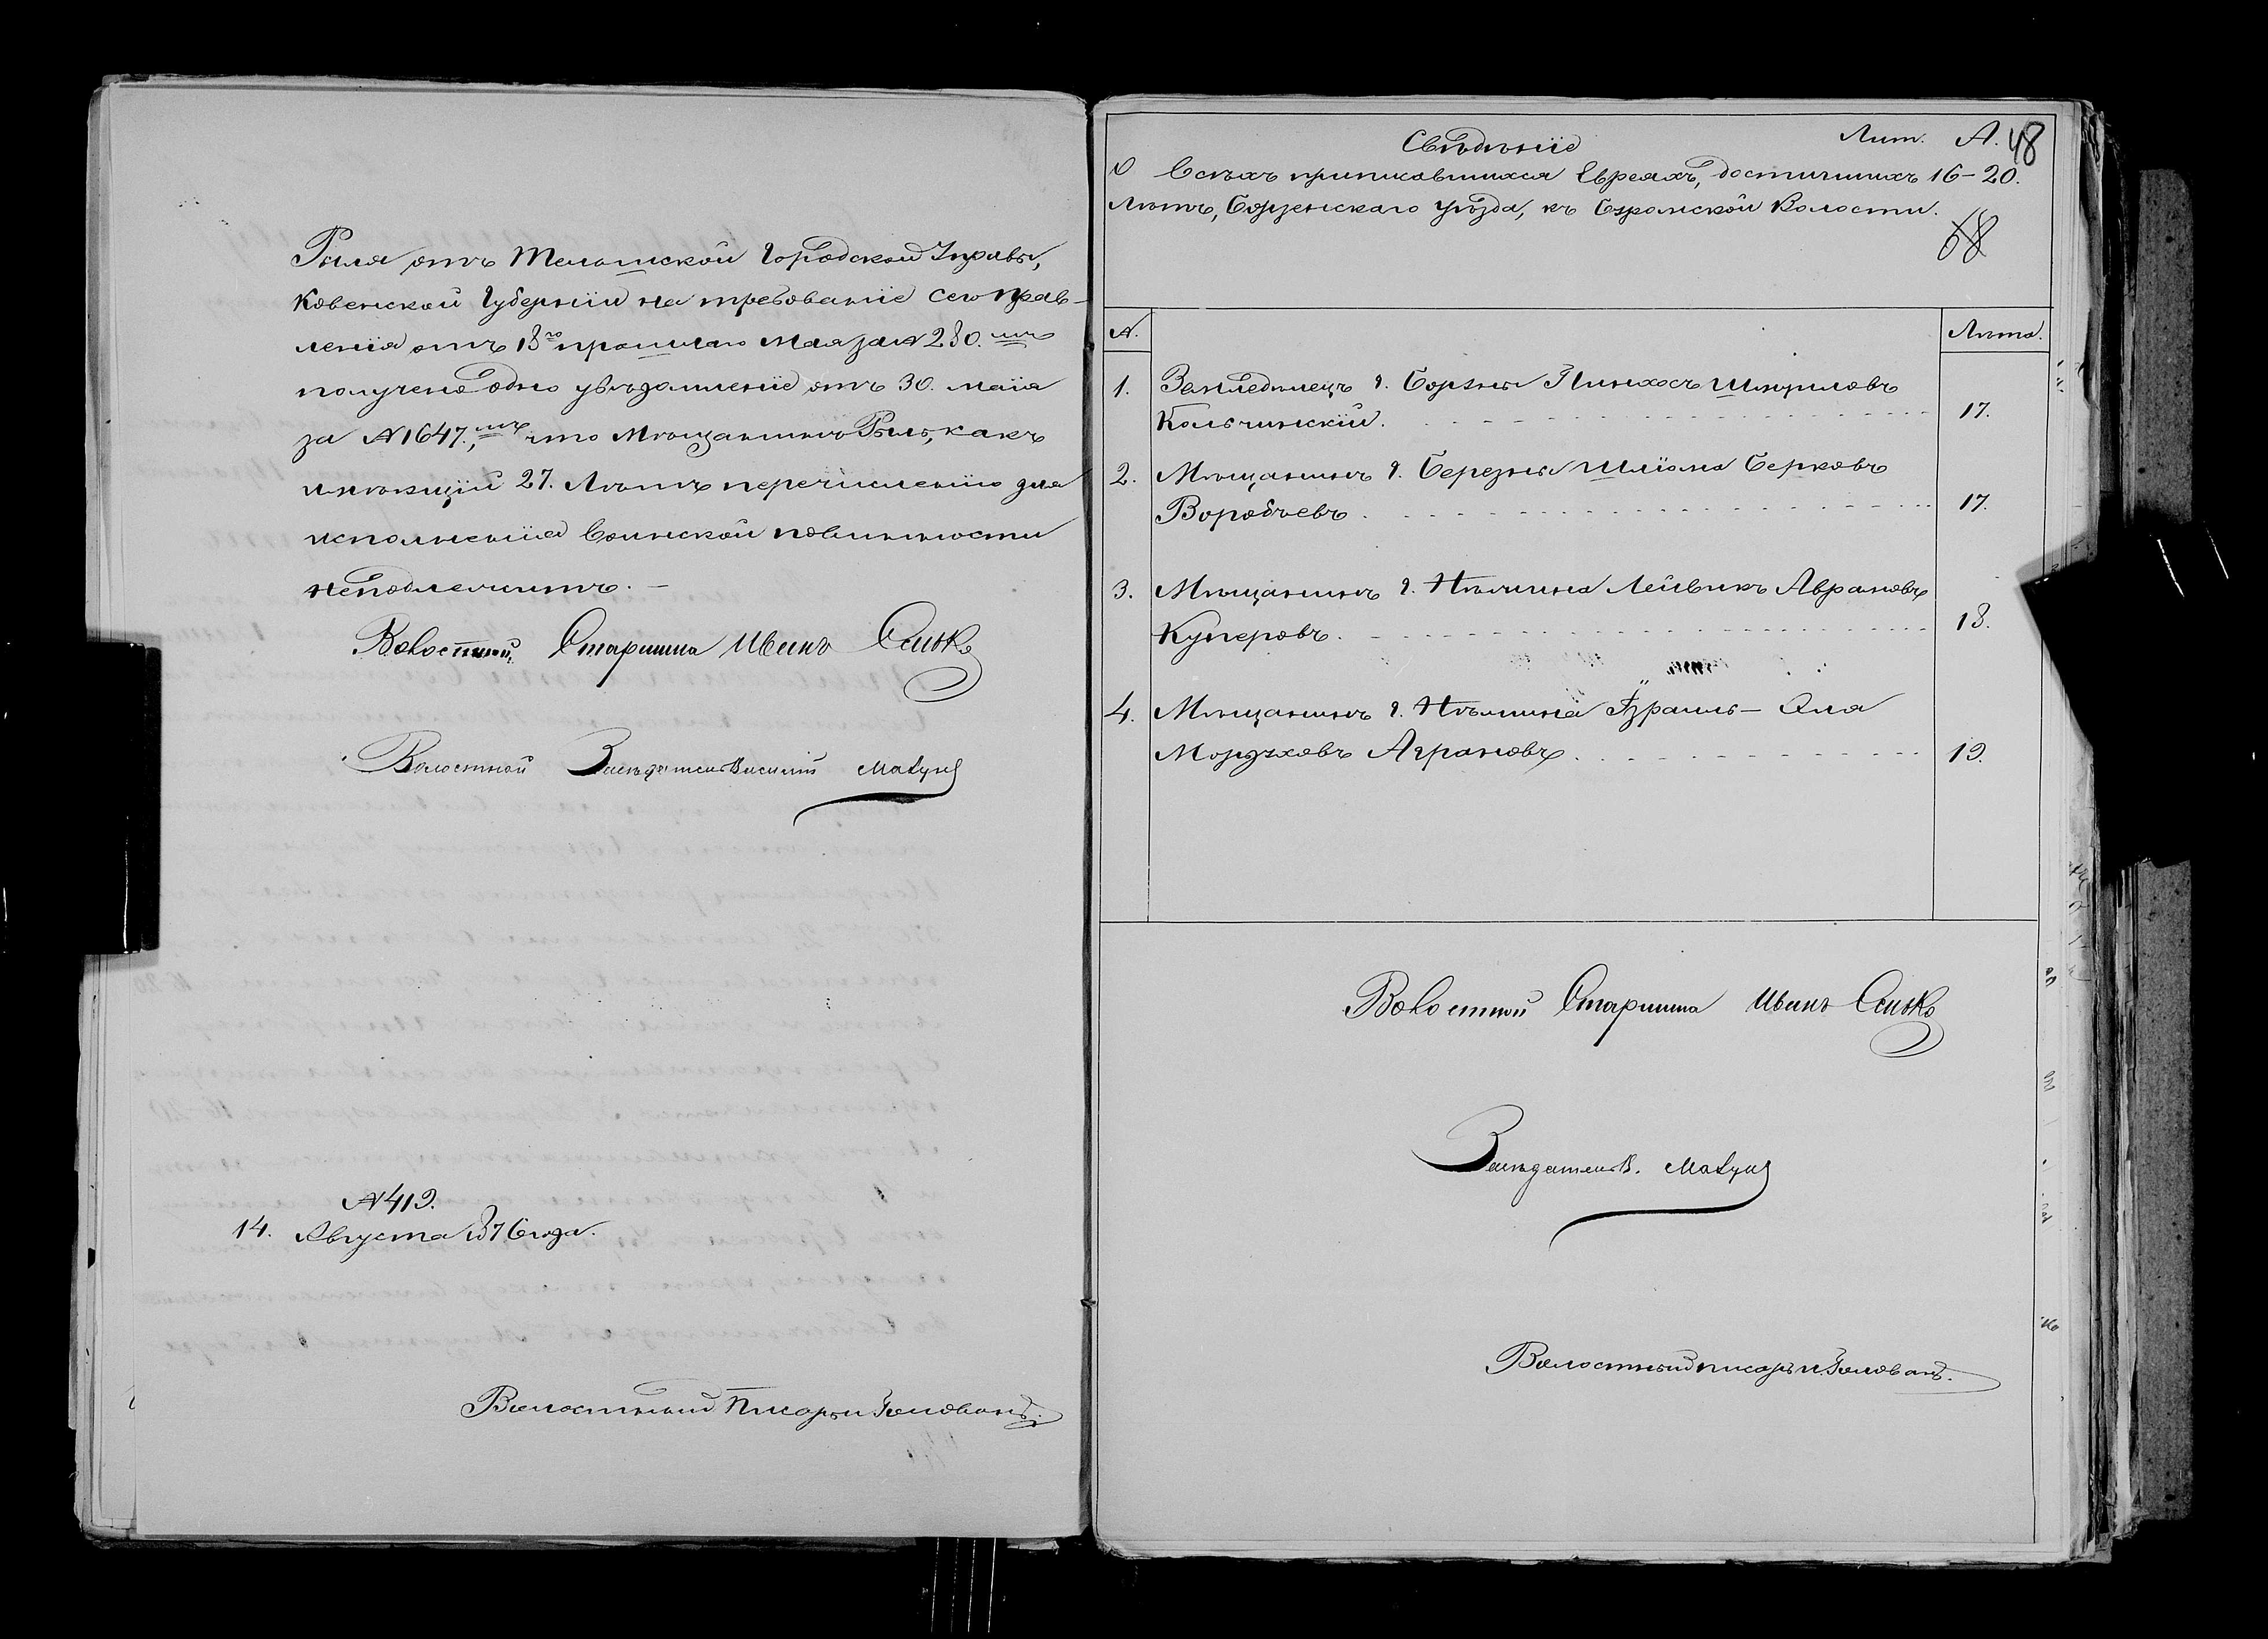 Рыля отъ Тельшской Городской Управы,
Ковенской Губерніи на требованіе сего Прав-
ленія отъ 18го прошлаго Мая за № 280.мъ
получено одно увѣдомленіе отъ 30. маія
за № 1647.,мъ что Мѣщанинъ Рыль, какъ
имѣющій 27. Лѣтъ перечисленію для
исполненія воинской повинности
неподлежитъ. —
Волостной Старшина Иванъ
Волостной Засѣдатель Василій
№ 419.
14. Августа 1876 года.
Волостный Писарь И. Голованъ.
Лит. А. 48
Свѣдѣніе
О всѣхъ приписавшихся Евреяхъ, достигшихъ 16-20.
Лѣтъ, Борзенскаго Уѣзда, къ Волости.
68
№. Лѣта.
1. Земледѣлецъ г. Борзны Пинхосъ Шмуиловъ
Кольчинскій. 17.
2. Мѣщанинъ г. Березны Шліома Берковъ
Воробьевъ. 17.
3. Мѣщанинъ г. Нѣжина Лейвикъ Абрамовъ
Куперовъ. 18.
4. Мѣщанинъ г. Нѣжина Израиль-Эля
Мордуховъ Аграновъ. 19.
Волостной Старшина Иванъ
Засѣдатель В.
Волостный писарь И. Голованъ.